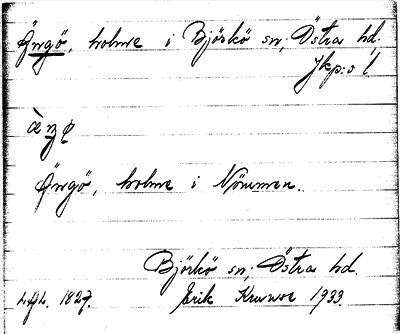 Ängö, holme i Björkö sn, Östra hd,
Jkp:s l
Ängö, holme i Nömmen.
Björkö sn, Östra hd.
1827. Erik 1933.